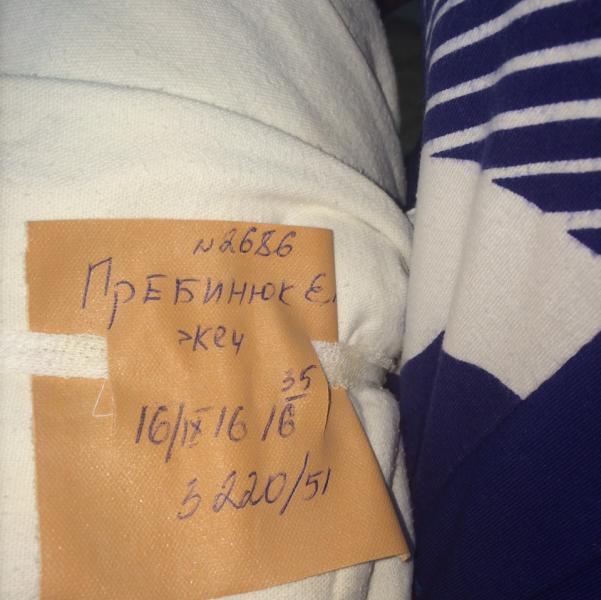 №2686
ПРЕБИНЮК Е.
жен
16/IX 16 16 35
3220/51